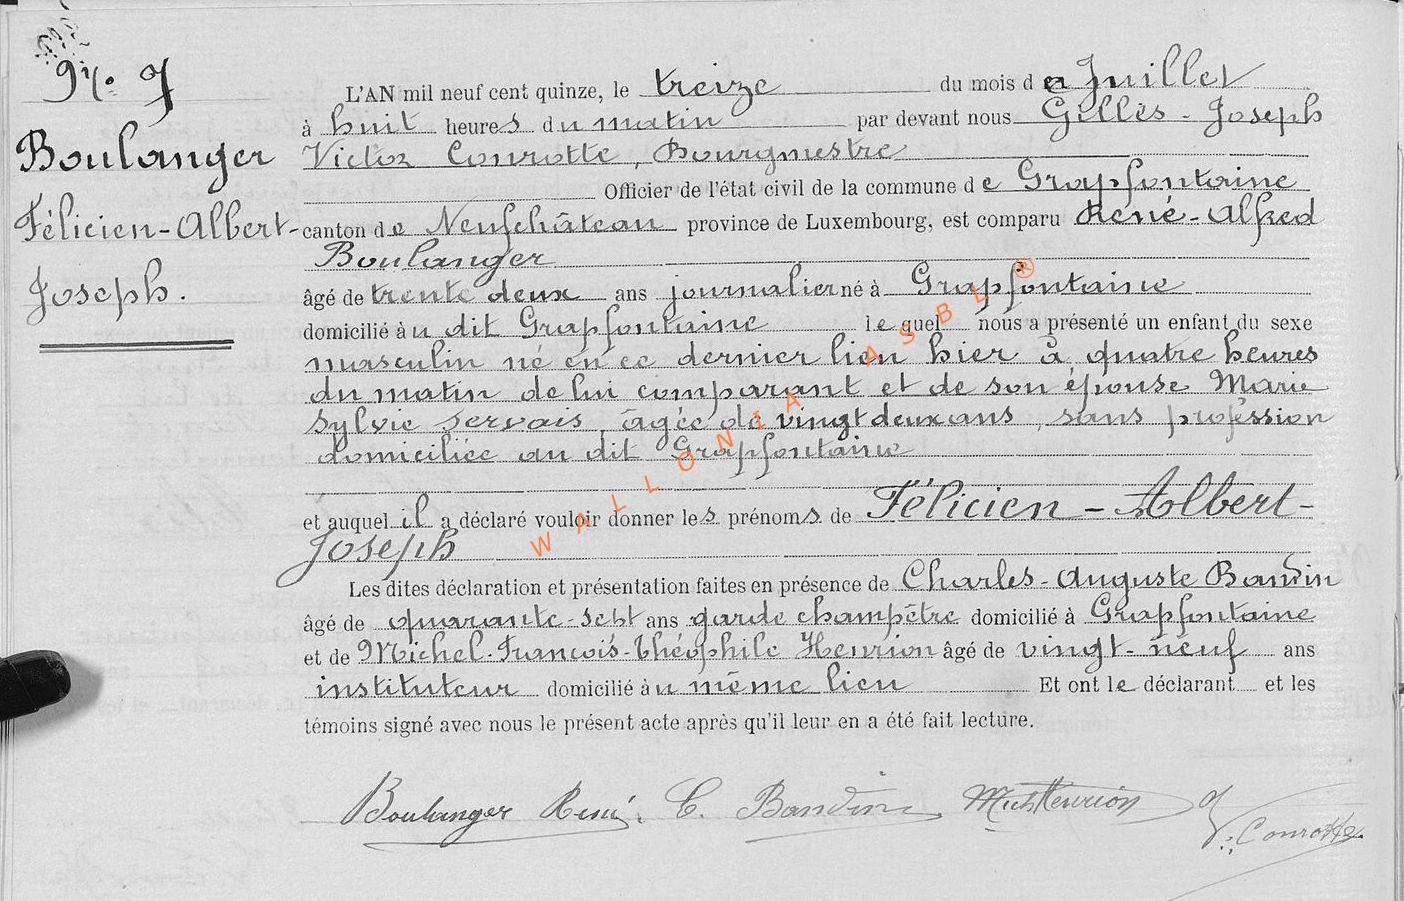 N.o 9
Boulanger
Félicien-Albert-
Joseph.
L'AN mil neuf cent quinze, le treize du mois de Juillet
à huit heures du matin par devant nous Gilles-Joseph
Victor Conrotte, Bourgmestre
Officier de l'état civil de la commune de Grapfontaine
canton de Neufchâteau province de Luxembourg, est comparu René-Alfred
Boulanger
âgé de trente deux ans journalier né à Grapfontaine
domicilié au dit Grapfontaine lequel nous a présenté un enfant du sexe
masculin né en ce dernier lieu hier à quatre heures
du matin de lui comparant et de son épouse Marie
Sylvie Servais, âgée de vingt deux ans, sans profession
domiciliée au dit Grapfontaine
et auquel il a déclaré vouloir donner les prénoms de Félicien-Albert-
Joseph
Les dites déclaration et présentation faites en présence de Charles-Auguste Baudin
âgé de quarante-sept ans garde champêtre domicilié à Grapfontaine
et de Michel-François-Théophile Henrion âgé de vingt-neuf ans
instituteur domicilié au même lieu Et ont le déclarant et les
témoins signé avec nous le présent acte après qu'il leur en a été fait lecture.
Boulanger René. C. Baudin Mich Henrion J V. Conrotte
WALLONIA ASBL ®